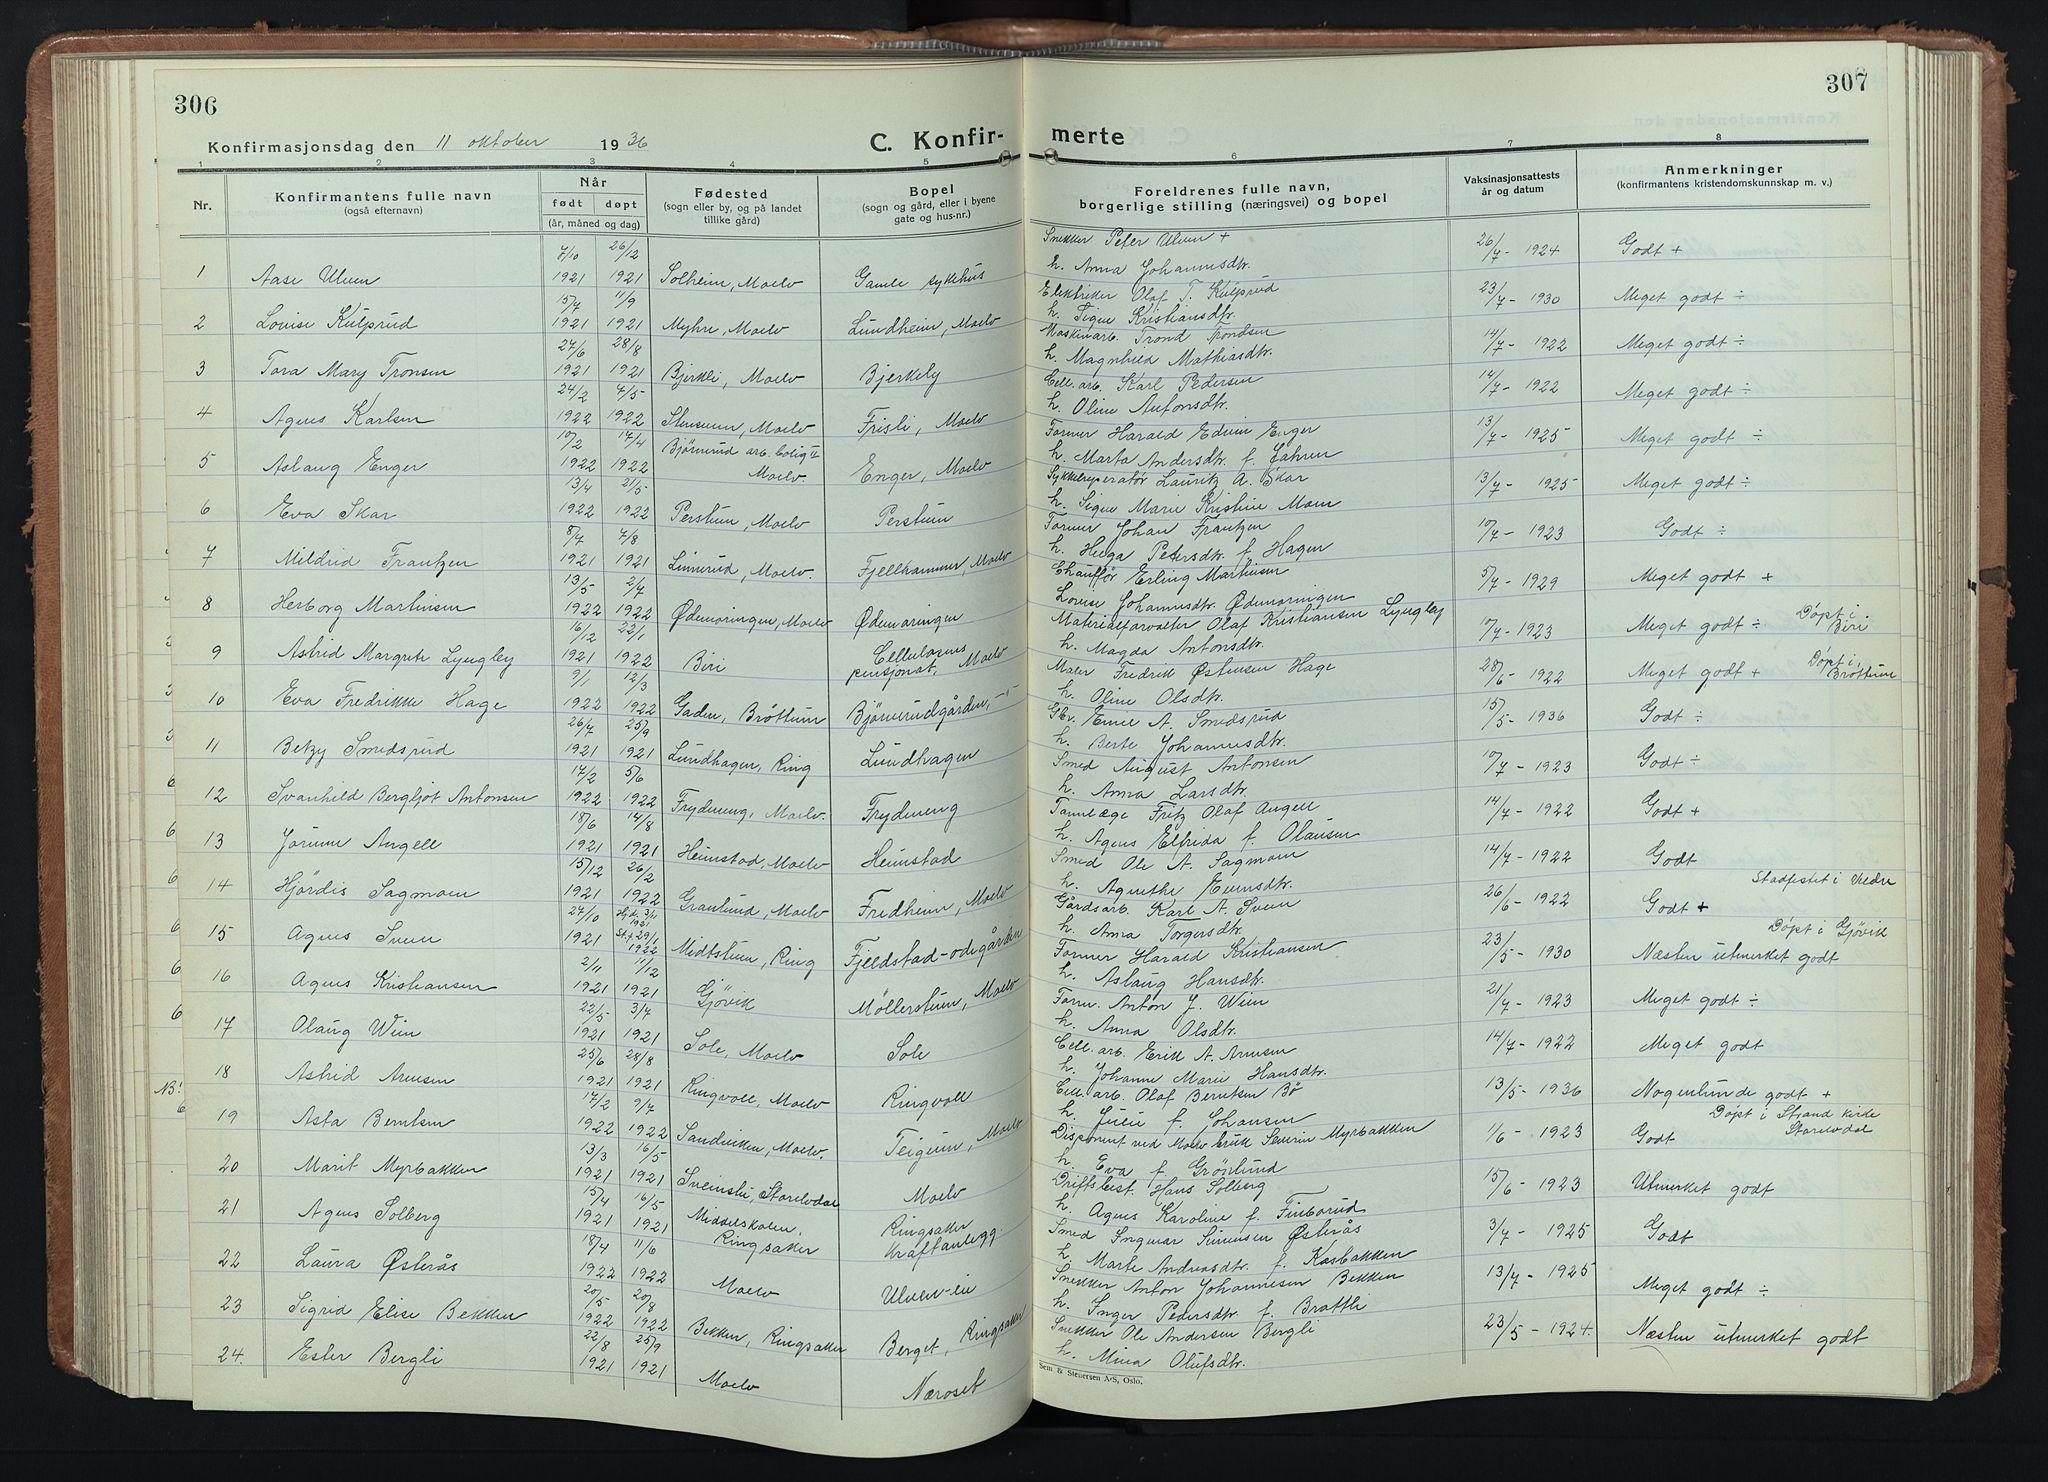 306
Konfirmasjonsdag den 11 oktober 1936
C. Konfir-
1 2 3 4 5
Nr.
Konfirmantens fulle navn
(også efternavn)
Når
født døpt
(år, måned og dag)
Fødested
(sogn eller by, og på landet
tillike gård)
Bopel
(sogn og gård, eller i byene
gate og hus-nr.)
7/10 26/12
1 Aase Ulven 1921 1921 Solheim, Moelv Gamle sykehus
15/7 11/9
2 Lovise Kulpsrud 1921 1921 Myhre, Moelv Lundheim, Moelv
27/6 28/8
3 Tora Mary Tronsen 1921 1921 Bjerkli, Moelv Bjerkely
24/2 7/5
4 Agnes Karlsen 1922 1922 Moelv Frisli, Moelv
10/2 17/4 Bjørnerud arb. bolig II
5 Aslaug Enger 1922 1922 Moelv Enger, Moelv
13/4 21/5
6 Eva Skar 1922 1922 Perstuen, Moelv Perstuen
8/7 7/8
7 Mildrid Frantzen 1921 1921 Linnerud, Moelv. Fjellhammer, Moelv
13/5 2/7
8 Herborg Martinsen 1922 1922 Ødemoringen, Moelv Ødemoringen
16/12 22/1
9 Astrid Margrete Lyngby 1921 1922 Biri Cellulosens
pensjonat, Moelv
9/1 12/3
10 Eva Fredrikke Hage 1922 1922 Gaden, Brøttum Bjørnerudgården, -"-
26/7 25/9
11 Betzy Smedsrud 1921 1921 Lundhagen, Ring Lundhagen
17/2 5/6
12 Svanhild Bergljot Antonsen 1922 1922 Frydeneng, Moelv. Frydeneng
18/6 14/8
13 Jorunn Angell 1921 1921 Heimstad, Moelv Heimstad
15/12 26/2
14 Hjördis Sagmoen 1921 1922 Granlund, Moelv Fredheim, Moelv
27/10 Hjd. 3/11
1921
15 Agnes Sveen 1921 St.f. 29/1
1922 Midtstuen, Ring Fjeldstad-ødegården
2/11 11/12
16 Agnes Kristiansen 1921 1921 Gjövik Möllerstuen, Moelv
22/5 3/7
17 Olaug Wien 1921 1921 Sole, Moelv Sole
25/6 28/8
18 Astrid Arnesen 1921 1921 Ringvoll, Moelv Ringvoll
17/2 9/7
19 Asta Berntsen 1922 1922 Sandviken, Moelv. Teigum, Moelv
13/3 16/5
20 Marit Myrbakken 1921 1921 Storelvdal Moelv
15/4 16/5
21 Agnes Solberg 1921 1921 Middelskolen,
Ringsaker Ringsaker
Kraftanlegg.
18/4 11/6
22 Laura Østerås 1922 1922 Moelv Ulven-eie
20/5 20/8
23 Sigrid Elise Bekken 1922 1922 Bekken, Ringsaker Berget, Ringsaker
22/8 25/9
24. Ester Bergli 1921 1921 Moelv Næroset
NB!
307
merte
6 7 8
Foreldrenes fulle navn,
borgerlige stilling (næringsvei) og bopel
Vaksinasjonsattests
år og datum
Anmerkninger
(konfirmantens kristendomskunnskap m. v.)
Snekker Peter Ulven +
h. Anna Johannesdtr. 26/7 - 1924 Godt +
Elektriker Olaf T. Kulpsrud
h. Signe Kristiansdtr. 23/7 - 1930 Meget godt ÷
Maskinarb. Trond Trondsen
h. Magnhild Mathiasdtr. 14/7 - 1922 Meget godt ÷
Cell. arb. Karl Pedersen
h. Oline Antonsdtr. 14/7 - 1922 Meget godt ÷
Former Harald Edvin Enger
h. Marta Andersdtr. f. Jahren 13/7 - 1925 Meget godt ÷
Sykkelreperatør Lauritz A. Skar
h. Signe Marie Kristine Moen 13/7 - 1925 Meget godt ÷
Former Johan Frantzen
h. Helga Petersdtr. f. Hagen 10/7 - 1923 Godt ÷
Chauffør Erling Martinsen
Lovise Johannesdtr. Ødemoringen 5/7 - 1929 Meget godt +
Materialforvalter Olaf Kristiansen Lyngby
h. Magda Antonsdtr. 10/7 - 1923 Meget godt ÷ Döpt i
Biri.
Maler Fredrik Østensen Hage
h. Oline Olsdtr. 28/6 - 1922 Meget godt + Döpt i
Brøttum
Gbr. Emil A. Smedsrud
h. Berte Johannesdtr. 15/5 - 1936 Godt ÷
Smed August Antonsen
h. Anna Larsdtr. 10/7 - 1923 Godt ÷
Tannlæge Fritz Olaf Angell
h. Agnes Elfrida f. Olausen 14/7 - 1922 Godt +
Smed Ole A. Sagmoen
h. Agnethe Evensdtr. 14/7 - 1922 Godt
Gårdsarb. Karl A. Sveen
h. Anna Torgersdtr. 26/6 - 1922 Godt + Stadfestet i Veldre
Former Harald Kristiansen
h. Aslaug Hansdtr. 23/5 - 1930 Næsten utmerket godt Döpt i Gjøvik
Form. Anton J. Wien
h. Anna Olsdtr. 21/7 - 1923 Meget godt ÷
Cell. arb. Erik A. Arnesen
h. Johanne Marie Hansdtr. 14/7 - 1922 Meget godt
Cell. arb. Olaf Berntsen Bø
h. Julie f. Johansen 13/5 - 1936 Nogenlunde godt +
Disponent ved Moelv bruk Severin Myrbakken
h. Eva f. Grønlund 1/6 - 1923 Godt Döpt i Strand kirke
Storelvdal
Driftsbest. Hans Solberg
h. Agnes Karoline f. Finborud 15/6 - 1923 Utmerket godt
Smed Ingvar Simensen Østerås
h. Marte Andreasdtr. f. Kasbakken 3/7 - 1925 Godt
Snekker Anton Johannesen Bekken
h. Inger Pedersdtr. f. Brattli 13/7 - 1925 Meget godt ÷
Snekker Ole Andersen Bergli
h. Mina Olufsdtr. 23/5 - 1924. Næsten utmerket godt
Sem & Stenersen A/S, Oslo.